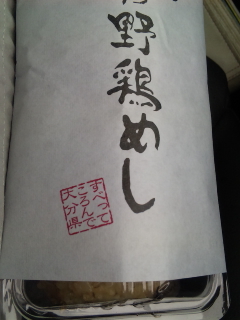 野鶏めし
すべって
ころんで
大分県